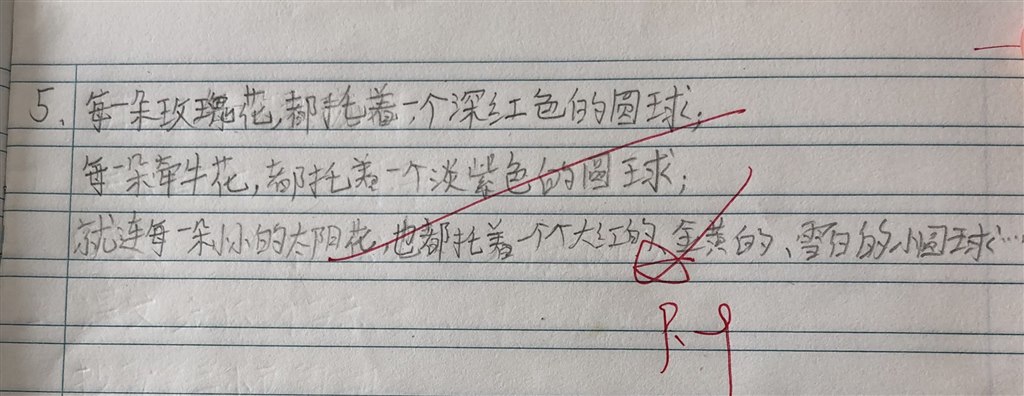 5、每一朵玫瑰花,都托着一个深红色的圆球;
每一朵牵牛花,都托着一个淡紫色的圆球;
就连每一朵小小的太阳花,也都托着一个个大红的、金黄的、雪白的小圆球……